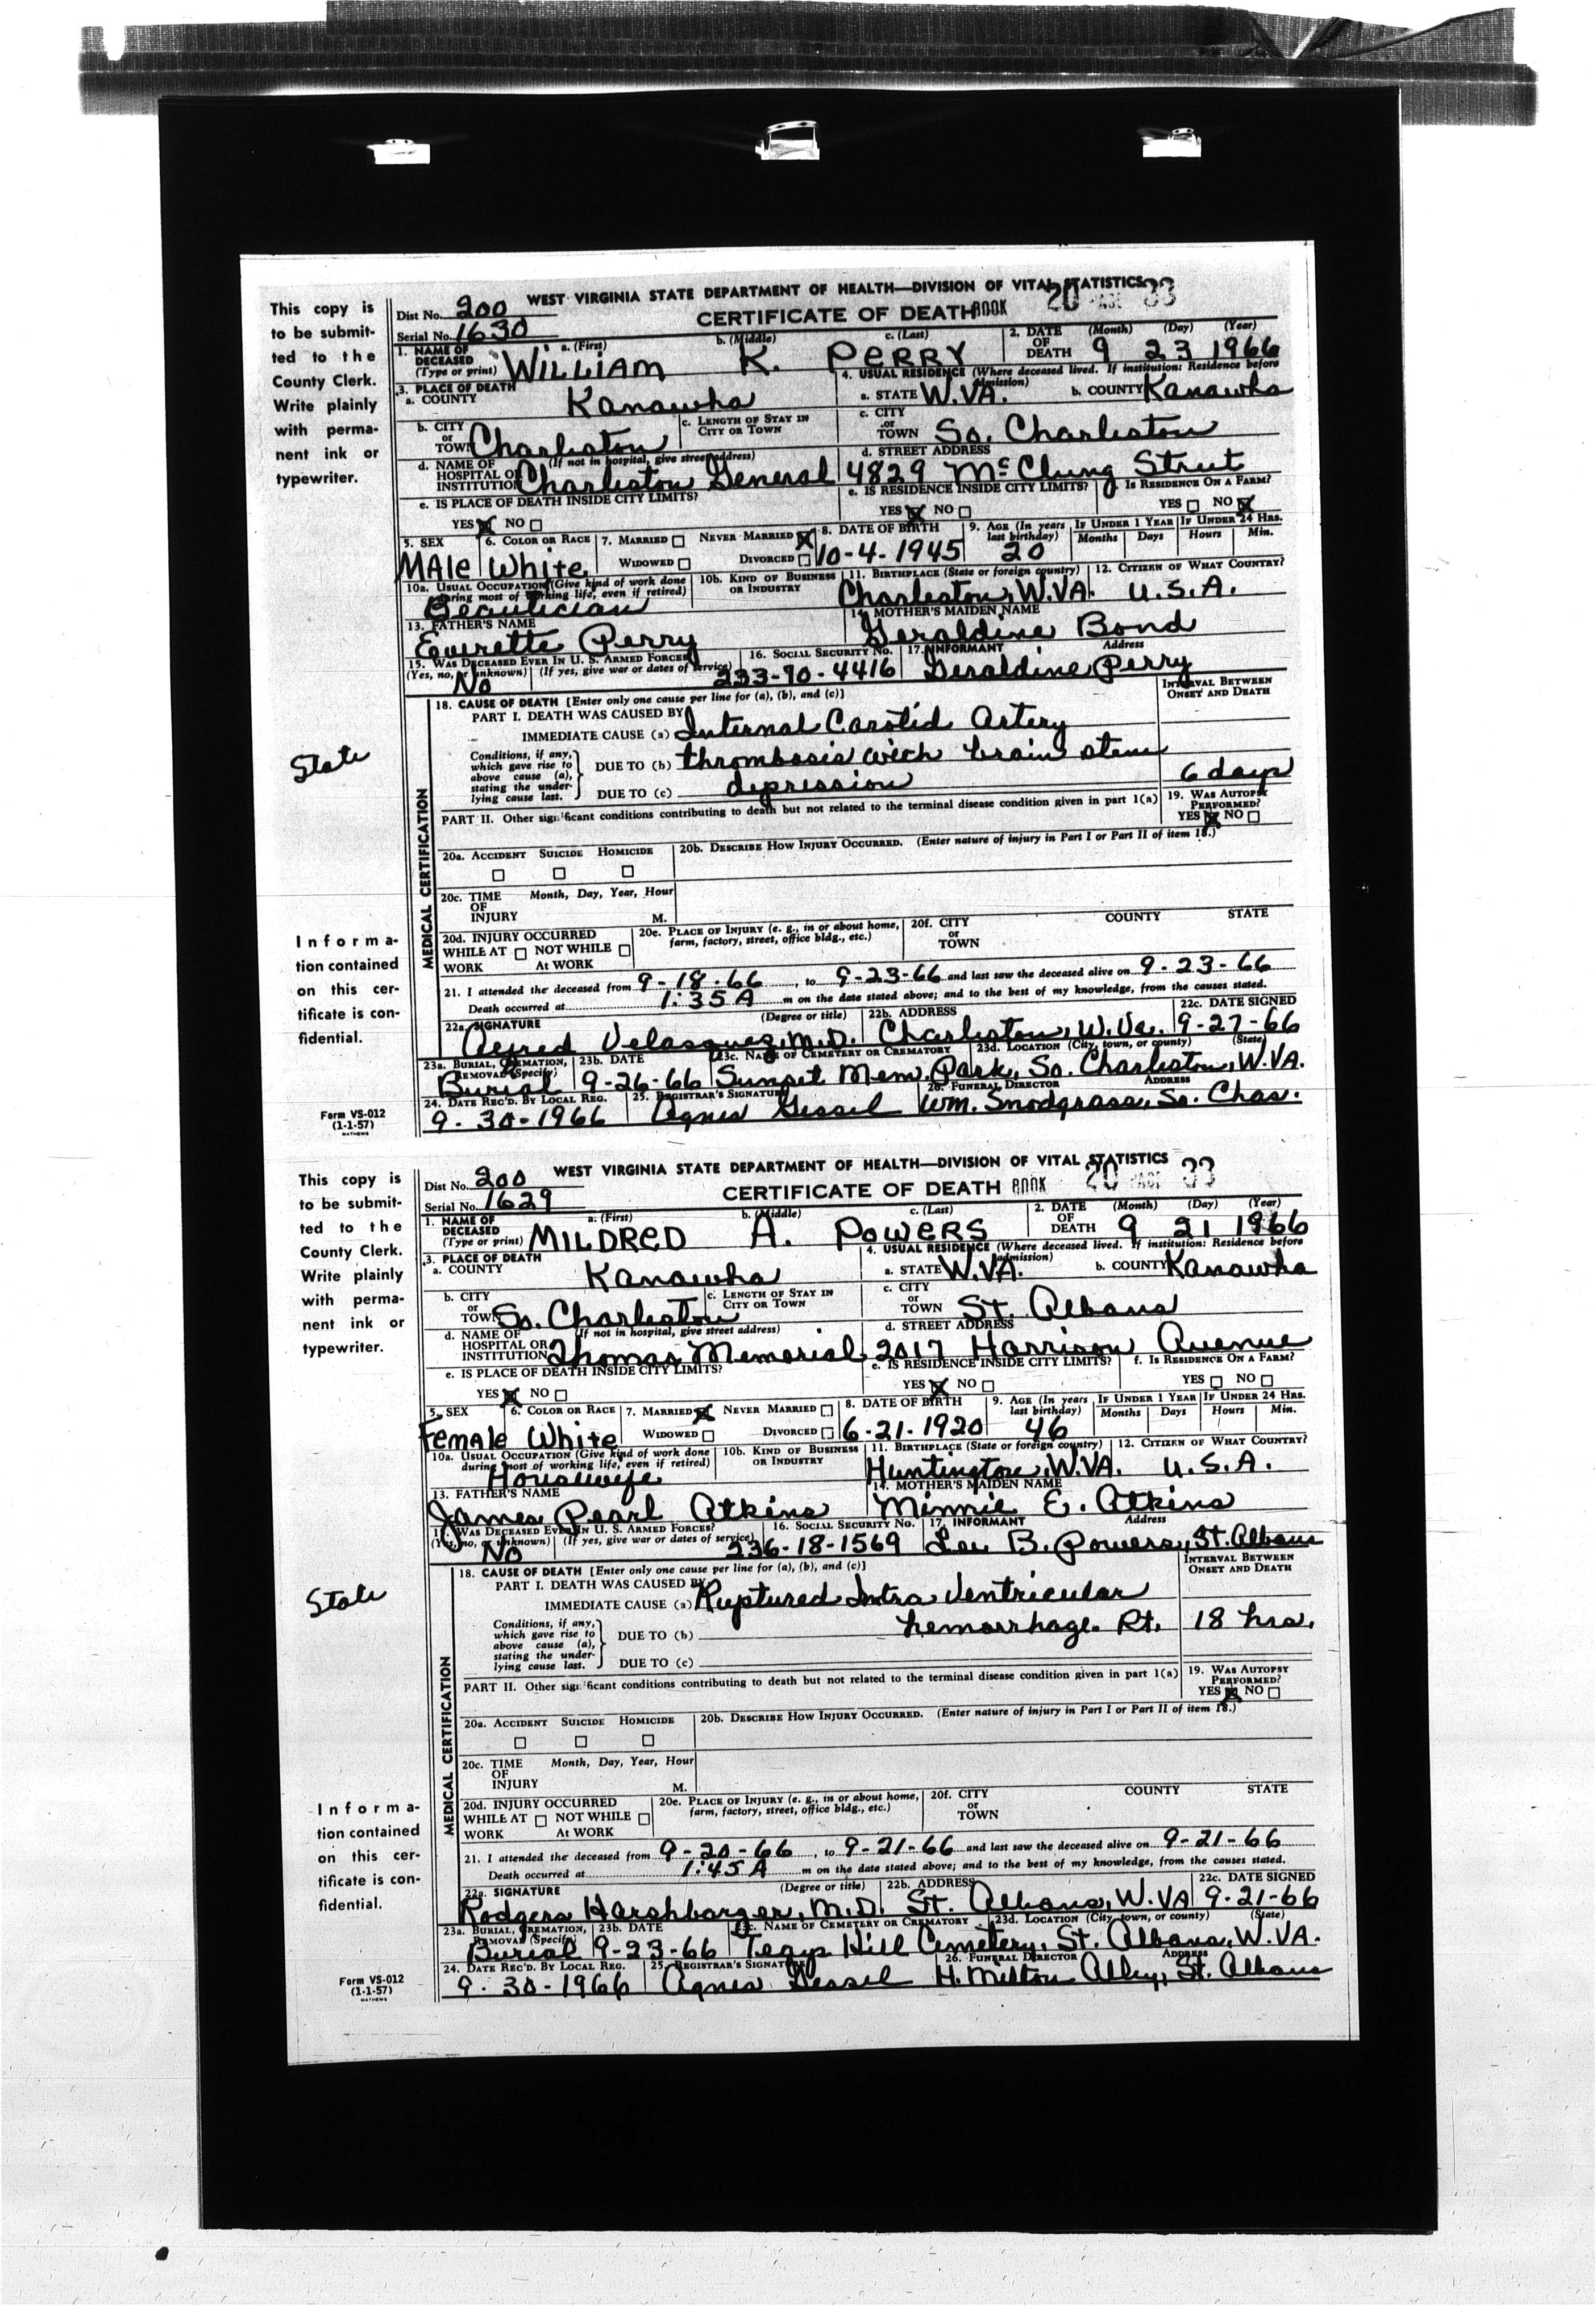 WEST VIRGINIA STATE DEPARTMENT OF HEALTH—DIVISION OF VITAL STATISTICS
This copy is to be submitted to the County Clerk. Write plainly with permanent ink or typewriter.
Dist No. 200
CERTIFICATE OF DEATH BOOK 20 PAGE 33
Serial No. 1630
1. NAME OF DECEASED (Type or print) a. (First) b. (Middle) c. (Last) WILLIAM K. PERRY
2. DATE OF DEATH (Month) (Day) (Year) 9 23 1966
3. PLACE OF DEATH a. COUNTY Kanawha
4. USUAL RESIDENCE (Where deceased lived. If institution: Residence before admission) a. STATE W.VA. b. COUNTY Kanawha
b. CITY or TOWN Charleston c. LENGTH OF STAY IN CITY OR TOWN
c. CITY or TOWN So. Charleston
d. NAME OF HOSPITAL OR INSTITUTION (If not in hospital, give street address) Charleston General
d. STREET ADDRESS 4829 McClung Street
e. IS PLACE OF DEATH INSIDE CITY LIMITS? YES NO
e. IS RESIDENCE INSIDE CITY LIMITS? YES NO f. IS RESIDENCE ON A FARM? YES NO
5. SEX MAle 6. COLOR OR RACE White 7. MARRIED NEVER MARRIED WIDOWED DIVORCED
8. DATE OF BIRTH 10-4-1945 9. AGE (In years last birthday) 20 IF UNDER 1 YEAR Months Days IF UNDER 24 HRS. Hours Min.
10a. USUAL OCCUPATION (Give kind of work done during most of working life, even if retired) Beautician
10b. KIND OF BUSINESS OR INDUSTRY
11. BIRTHPLACE (State or foreign country) Charleston, W.VA. 12. CITIZEN OF WHAT COUNTRY? U.S.A.
13. FATHER'S NAME Everette Perry
14. MOTHER'S MAIDEN NAME Geraldine Bond
15. WAS DECEASED EVER IN U. S. ARMED FORCES? (Yes, no, or unknown) (If yes, give war or dates of service) No
16. SOCIAL SECURITY NO. 233-70-4416 17. INFORMANT Address Geraldine Perry
18. CAUSE OF DEATH [Enter only one cause per line for (a), (b), and (c)] INTERVAL BETWEEN ONSET AND DEATH
PART I. DEATH WAS CAUSED BY
IMMEDIATE CAUSE (a) Internal Carotid Artery
State
Conditions, if any, which gave rise to above cause (a), stating the underlying cause last.
DUE TO (b) thrombosis with brain stem
DUE TO (c) depression 6 days
PART II. Other significant conditions contributing to death but not related to the terminal disease condition given in part 1(a)
19. WAS AUTOPSY PERFORMED? YES NO
MEDICAL CERTIFICATION
20a. ACCIDENT SUICIDE HOMICIDE
20b. DESCRIBE HOW INJURY OCCURRED. (Enter nature of injury in Part I or Part II of item 18.)
20c. TIME OF INJURY Month, Day, Year, Hour M.
Information contained on this certificate is confidential.
20d. INJURY OCCURRED WHILE AT WORK NOT WHILE At WORK
20e. PLACE OF INJURY (e. g., in or about home, farm, factory, street, office bldg., etc.)
20f. CITY or TOWN COUNTY STATE
21. I attended the deceased from 9-18-66, to 9-23-66 and last saw the deceased alive on 9-23-66
Death occurred at 1:35 A m on the date stated above; and to the best of my knowledge, from the causes stated.
22a. SIGNATURE (Degree or title) Alfred Velasquez, M.D. 22b. ADDRESS Charleston, W.Va. 22c. DATE SIGNED 9-27-66
23a. BURIAL, CREMATION, REMOVAL (Specify) Burial 23b. DATE 9-26-66 23c. NAME OF CEMETERY OR CREMATORY Sunset Mem. Park, 23d. LOCATION (City, town, or county) (State) So. Charleston, W.VA.
24. DATE REC'D. BY LOCAL REG. 9-30-1966 25. REGISTRAR'S SIGNATURE Agnes Gessel 26. FUNERAL DIRECTOR ADDRESS Wm. Snodgrass, So. Chas.
Form VS-012
(1-1-57)
MATHEWS
WEST VIRGINIA STATE DEPARTMENT OF HEALTH—DIVISION OF VITAL STATISTICS
This copy is to be submitted to the County Clerk. Write plainly with permanent ink or typewriter.
Dist No. 200
CERTIFICATE OF DEATH BOOK 20 PAGE 33
Serial No. 1629
1. NAME OF DECEASED (Type or print) a. (First) b. (Middle) c. (Last) MILDRED A. POWERS
2. DATE OF DEATH (Month) (Day) (Year) 9 21 1966
3. PLACE OF DEATH a. COUNTY Kanawha
4. USUAL RESIDENCE (Where deceased lived. If institution: Residence before admission) a. STATE W.VA. b. COUNTY Kanawha
b. CITY or TOWN So. Charleston c. LENGTH OF STAY IN CITY OR TOWN
c. CITY or TOWN St. Albans
d. NAME OF HOSPITAL OR INSTITUTION (If not in hospital, give street address) Thomas Memorial
d. STREET ADDRESS 2017 Harrison Avenue
e. IS PLACE OF DEATH INSIDE CITY LIMITS? YES NO
e. IS RESIDENCE INSIDE CITY LIMITS? YES NO f. IS RESIDENCE ON A FARM? YES NO
5. SEX Female 6. COLOR OR RACE White 7. MARRIED NEVER MARRIED WIDOWED DIVORCED
8. DATE OF BIRTH 6-21-1920 9. AGE (In years last birthday) 46 IF UNDER 1 YEAR Months Days IF UNDER 24 HRS. Hours Min.
10a. USUAL OCCUPATION (Give kind of work done during most of working life, even if retired) Housewife
10b. KIND OF BUSINESS OR INDUSTRY
11. BIRTHPLACE (State or foreign country) Huntington, W.VA. 12. CITIZEN OF WHAT COUNTRY? U.S.A.
13. FATHER'S NAME James Pearl Atkins
14. MOTHER'S MAIDEN NAME Minnie E. Atkins
15. WAS DECEASED EVER IN U. S. ARMED FORCES? (Yes, no, or unknown) (If yes, give war or dates of service) No
16. SOCIAL SECURITY NO. 236-18-1569 17. INFORMANT Address Lee B. Powers, St. Albans
18. CAUSE OF DEATH [Enter only one cause per line for (a), (b), and (c)] INTERVAL BETWEEN ONSET AND DEATH
PART I. DEATH WAS CAUSED BY
IMMEDIATE CAUSE (a) Ruptured Intra Ventricular
State
Conditions, if any, which gave rise to above cause (a), stating the underlying cause last.
DUE TO (b) hemorrhage Rt. 18 hrs.
DUE TO (c)
PART II. Other significant conditions contributing to death but not related to the terminal disease condition given in part 1(a)
19. WAS AUTOPSY PERFORMED? YES NO
MEDICAL CERTIFICATION
20a. ACCIDENT SUICIDE HOMICIDE
20b. DESCRIBE HOW INJURY OCCURRED. (Enter nature of injury in Part I or Part II of item 18.)
20c. TIME OF INJURY Month, Day, Year, Hour M.
Information contained on this certificate is confidential.
20d. INJURY OCCURRED WHILE AT WORK NOT WHILE At WORK
20e. PLACE OF INJURY (e. g., in or about home, farm, factory, street, office bldg., etc.)
20f. CITY or TOWN COUNTY STATE
21. I attended the deceased from 9-20-66, to 9-21-66 and last saw the deceased alive on 9-21-66
Death occurred at 1:45 A m on the date stated above; and to the best of my knowledge, from the causes stated.
22a. SIGNATURE (Degree or title) Rodgers Harshbarger, M.D. 22b. ADDRESS St. Albans, W.VA 22c. DATE SIGNED 9-21-66
23a. BURIAL, CREMATION, REMOVAL (Specify) Burial 23b. DATE 9-23-66 23c. NAME OF CEMETERY OR CREMATORY Teays Hill Cemetery, 23d. LOCATION (City, town, or county) (State) St. Albans, W.VA.
24. DATE REC'D. BY LOCAL REG. 9-30-1966 25. REGISTRAR'S SIGNATURE Agnes Gessel 26. FUNERAL DIRECTOR ADDRESS H. Milton Alley, St. Albans
Form VS-012
(1-1-57)
MATHEWS